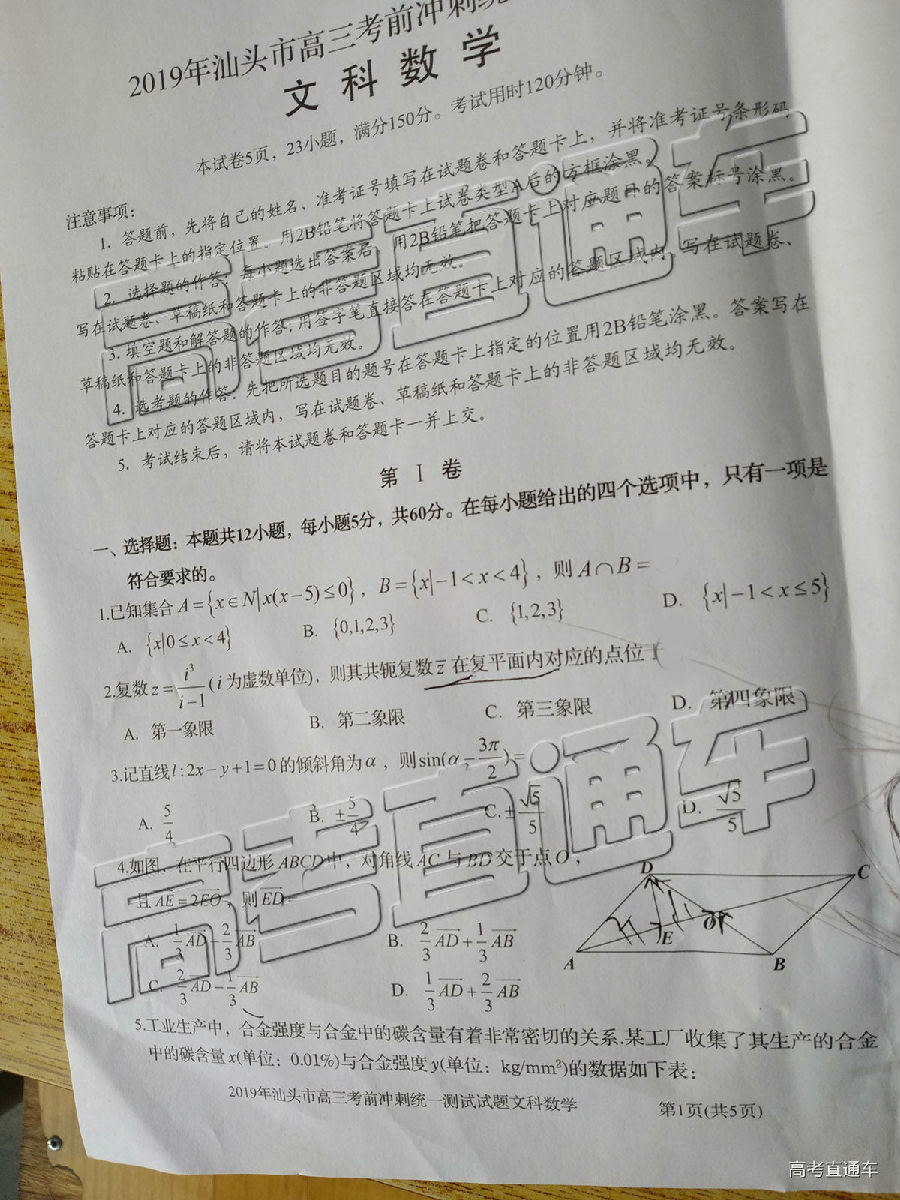 2019年汕头市高三考前冲刺统
文 科 数 学
本试卷5页，23小题，满分150分。考试用时120分钟。
注意事项：
1．答题前，先将自己的姓名、准考证号填写在试题卷和答题卡上，并将准考证号条形码
粘贴在答题卡上的指定位置。用2B铅笔将答题卡上试卷类型A后的方框涂黑。
2．选择题的作答：每小题选出答案后，用2B铅笔把答题卡上对应题目的答案标号涂黑。
写在试题卷、草稿纸和答题卡上的非答题区域均无效。
3．填空题和解答题的作答：用签字笔直接答在答题卡上对应的答题区域内，写在试题卷、
草稿纸和答题卡上的非答题区域均无效。
4．选考题的作答：先把所选题目的题号在答题卡上指定的位置用2B铅笔涂黑。答案写在
答题卡上对应的答题区域内，写在试题卷、草稿纸和答题卡上的非答题区域均无效。
5．考试结束后，请将本试题卷和答题卡一并上交。
第 I 卷
一、选择题：本题共12小题，每小题5分，共60分。在每小题给出的四个选项中，只有一项是
符合要求的。
1.已知集合 A={x∈N|x(x−5)≤0}，B={x|−1<x<4}，则 A∩B=
A. {x|0≤x<4} B. {0,1,2,3} C. {1,2,3} D. {x|−1<x≤5}
2.复数 z=i³/(i−1) (i 为虚数单位)，则其共轭复数 z̄ 在复平面内对应的点位于
A. 第一象限 B. 第二象限 C. 第三象限 D. 第四象限
3.记直线 l:2x−y+1=0 的倾斜角为 α，则 sin(α−3π/2)=
A. 5/4 B. ±5/4 C. ±√5/5 D. √5/5
4.如图，在平行四边形 ABCD 中，对角线 AC 与 BD 交于点 O，
且 AE=2EO，则 ED=
A. 1/3 AD−2/3 AB B. 2/3 AD+1/3 AB
C. 2/3 AD−1/3 AB D. 1/3 AD+2/3 AB
D C
E O
A B
5.工业生产中，合金强度与合金中的碳含量有着非常密切的关系.某工厂收集了其生产的合金
中的碳含量 x(单位：0.01%)与合金强度 y(单位：kg/mm²)的数据如下表：
2019年汕头市高三考前冲刺统一测试试题文科数学 第1页(共5页)
高考直通车
高考直通车
高考直通车